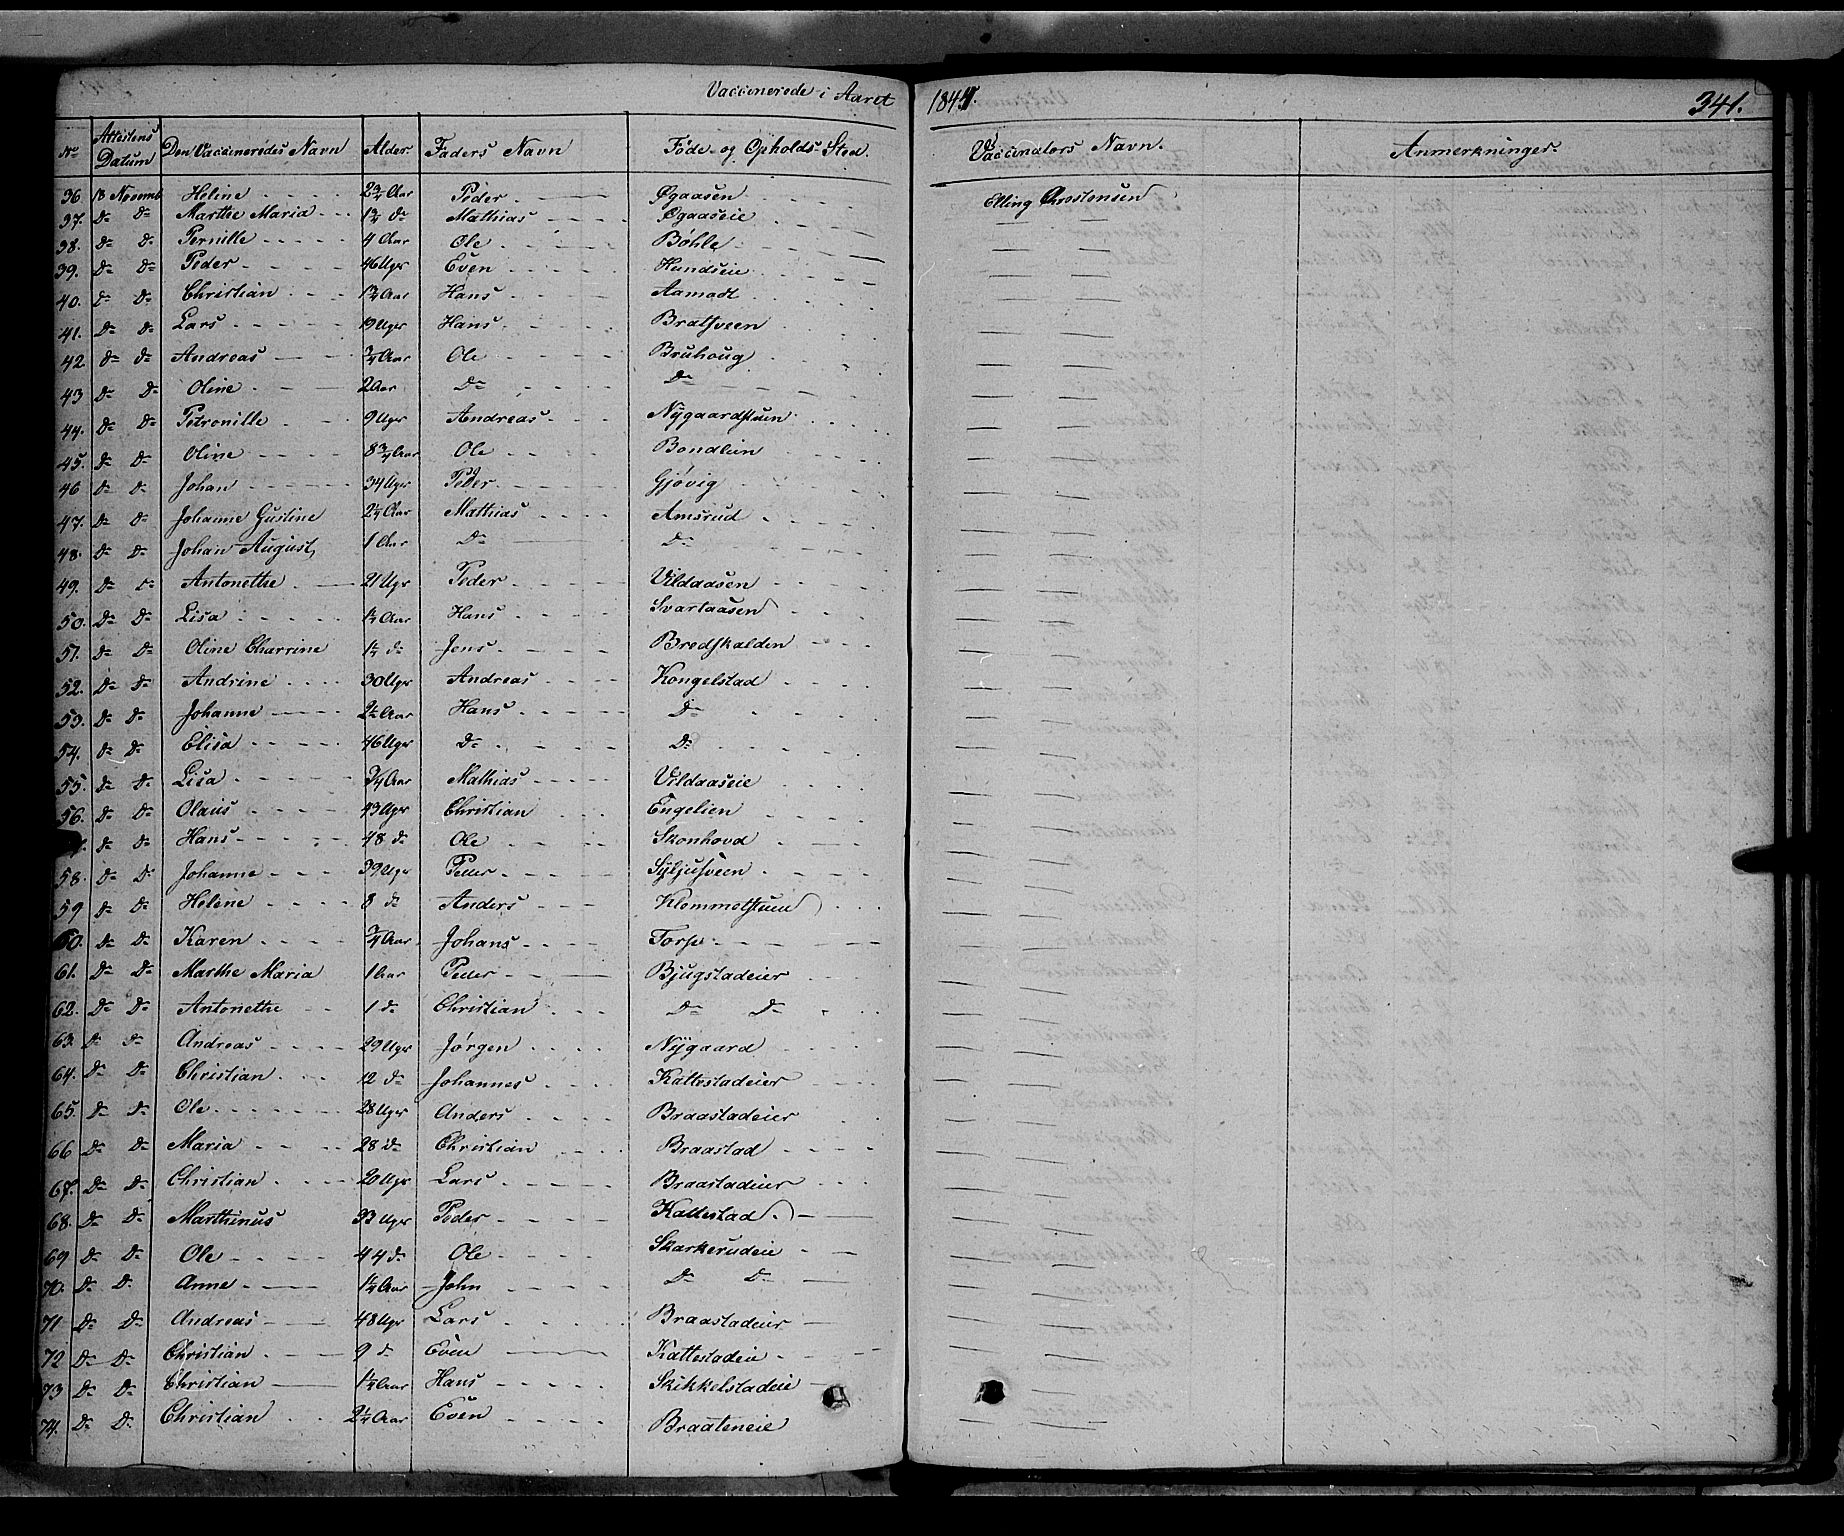 Vaccinerede i Aaret 184 341.
No Attestens Datum Den Vaccineredes Navn Alder Faders Navn Føde- og Opholds-Sted. Vaccinators Navn. Anmerkninger.
36. 13 Novemb Heline 2 3/4 Aar Peder Øgaasen Elling Chrostensen
37. Do Do Marthe Maria do Mathias Øgaaseie
38. Do Do Pernille 4 Aar Ole Bøhle
39. Do Do Peder 46 Uger Even Hundseie
40. Do Do Christian 1 3/4 Aar Hans Aamodt
41. Do Do Lars 19 Uger Hans Bratsveen
42. Do Do Andreas 3/4 Aar Ole Bruhoug
43 Do Do Oline 2 Aar Do Do
44. Do Do Petronille 9 Uger Andreas Nygaardstuen
45. Do Do Oline 8 3/4 Aar Ole Bondlien
46 Do Do Johan 34 Uger Peder Gjøvig
47. Do Do Johanne Gustine 2 1/4 Aar Mathias Amsrud
48. Do Do Johan August 1 Aar Do Do
49. Do Do Antonethe 21 Uger Peder Vildaasen
50. Do Do Lisa 1 1/4 Aar Hans Svartaasen
51. Do Do Oline Charrine 1 1/2 do Jens Bredskalden
52. Do Do Andrine 30 Uger Andreas Kongelstad
53. Do Do Johanne 2 1/2 Aar Hans Do
54. Do Do Elisa 46 Uger Do Do
55. Do Do Lisa 3/4 Aar Mathias Vildaaseie
56. Do Do Olaus 43 Uger Christian Engelien
Do Do Hans 48 do Ole Skonhovd
58. Do Do Johanne 39 Uger Peder Syljusveen
59 Do Do Helene 8 do Anders Klommetstuen
60. Do Do Karen 3/4 Aar Johans Torp
61. Do Do Marthe Maria 1 Aar Peder Bjugstadeier
62. Do Do Antonethe 1 do Christian Do Do
63. Do Do Andreas 29 Uger Jørgen Nygaard
64. Do Do Christian 12 do Johannes Kattestadeier
65. Do Do Ole 28 Uger Anders Braastadeier
66 Do Do Maria 28 do Christian Braastad
67. Do Do Christian 20 Uger Lars Braastadeier
68. Do Do Marthinus 33 Uger Peder Kattestad
69 Do Do Ole 44 do Ole Skarkerudeie
70. Do Do Anne 1 1/4 Aar John Do Do
71 Do Do Andreas 48 Uger Lars Braastadeier
72 Do Do Christian 9 do Even Kattestadeie
73 Do Do Christian 1 1/4 Aar Hans Skikkelstadeie
74. Do Do Christian 2 1/4 Aar Even Braateneie